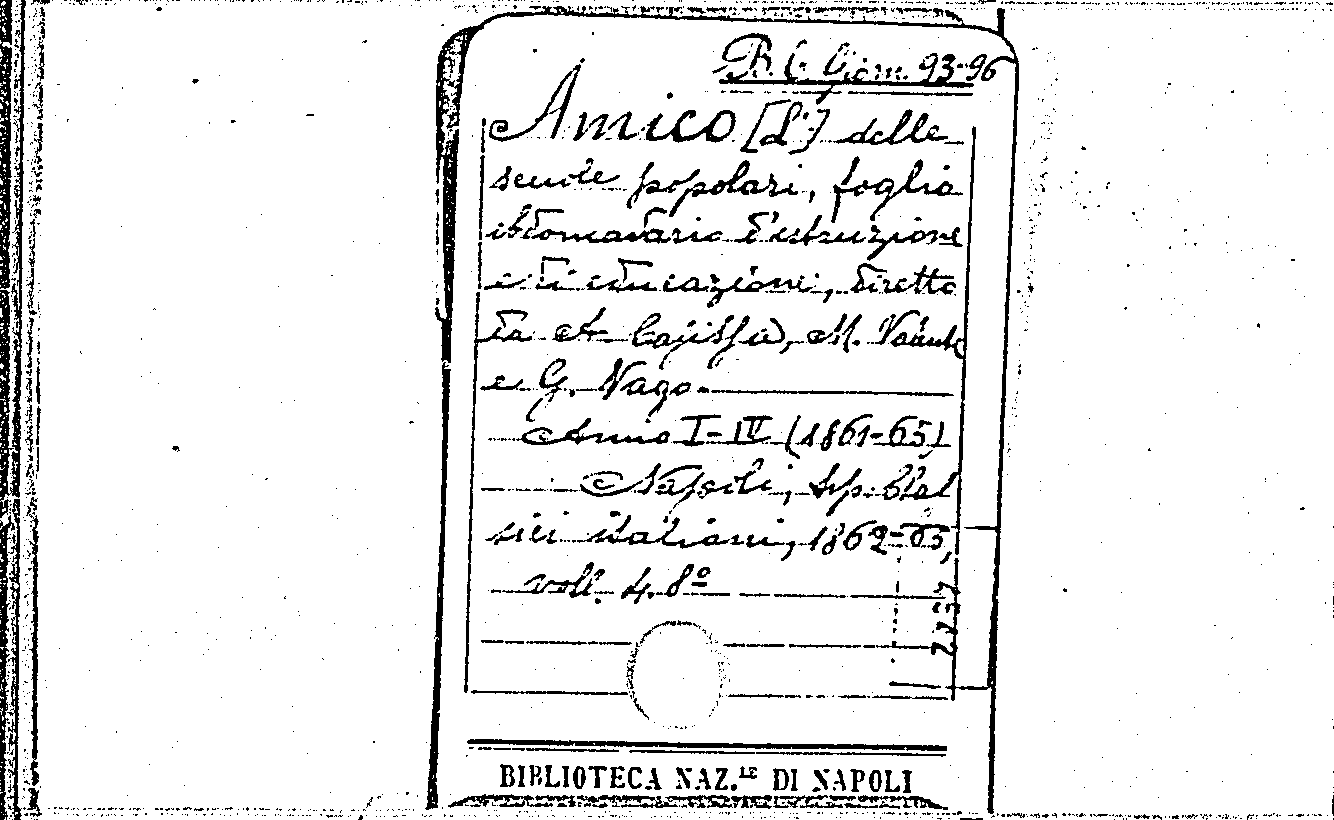 B. G. Giorn. 93-96
Amico [L'] delle
scuole popolari, foglio
ebdomadario d'istruzione
e di educazione, diretto
da A. M.
e G. Nago.
Anno I-IV (1861-65)
Napoli, tip. Clas
sici italiani, 1862-65,
voll. 4. 8º
BIBLIOTECA NAZ.LE DI NAPOLI